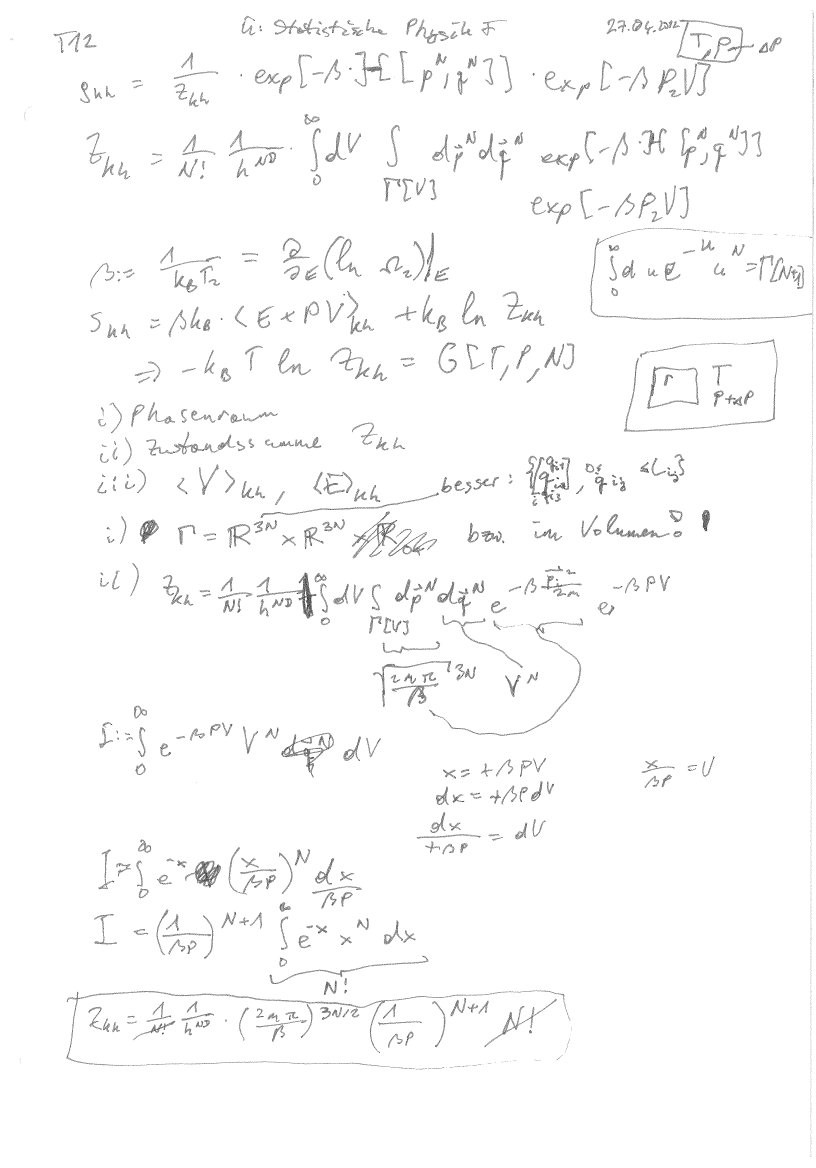 T12 Ü: Statistische Physik I 27.04.2012 T, P → ΔP
ρ_kh = 1/Z_kh · exp[-β·H[p^N, q^N]] · exp[-β P_2 V]
Z_kh = 1/N! 1/h^ND · ∫_0^∞ dV ∫_Γ[V] dp⃗^N dq⃗^N exp[-β·H[p^N, q^N]]
exp[-β P_2 V]
β := 1/(k_B T_2) = ∂/∂E (ln Ω_2)|_E
∫_0^∞ du e^-u u^N = Γ[N+1]
S_kh = βk_B · <E + PV>_kh + k_B ln Z_kh
⇒ -k_B T ln Z_kh = G[T, P, N]
Γ T P+ΔP
i) Phasenraum
ii) Zustandssumme Z_kh
iii) <V>_kh, <E>_kh besser: {[q_i1 q_i2 q_i3], 0≤ q_ij ≤L_ij}
i) Γ = ℝ^3N × ℝ^3N × bzw. im Volumen!
ii) Z_kh = 1/N! 1/h^ND ∫_0^∞ dV ∫_Γ[V] dp⃗^N dq⃗^N e^(-β p⃗_i^2/2m) e^-βPV
√(2mπ/β)^3N V^N
I := ∫_0^∞ e^-βPV V^N dV
x = +βPV x/βP = V
dx = +βP dV
dx/+βP = dV
I = ∫_0^∞ e^-x (x/βP)^N dx/βP
I = (1/βP)^N+1 ∫_0^∞ e^-x x^N dx
N!
Z_kh = 1/N! 1/h^ND · (2mπ/β)^3N/2 (1/βP)^N+1 N!